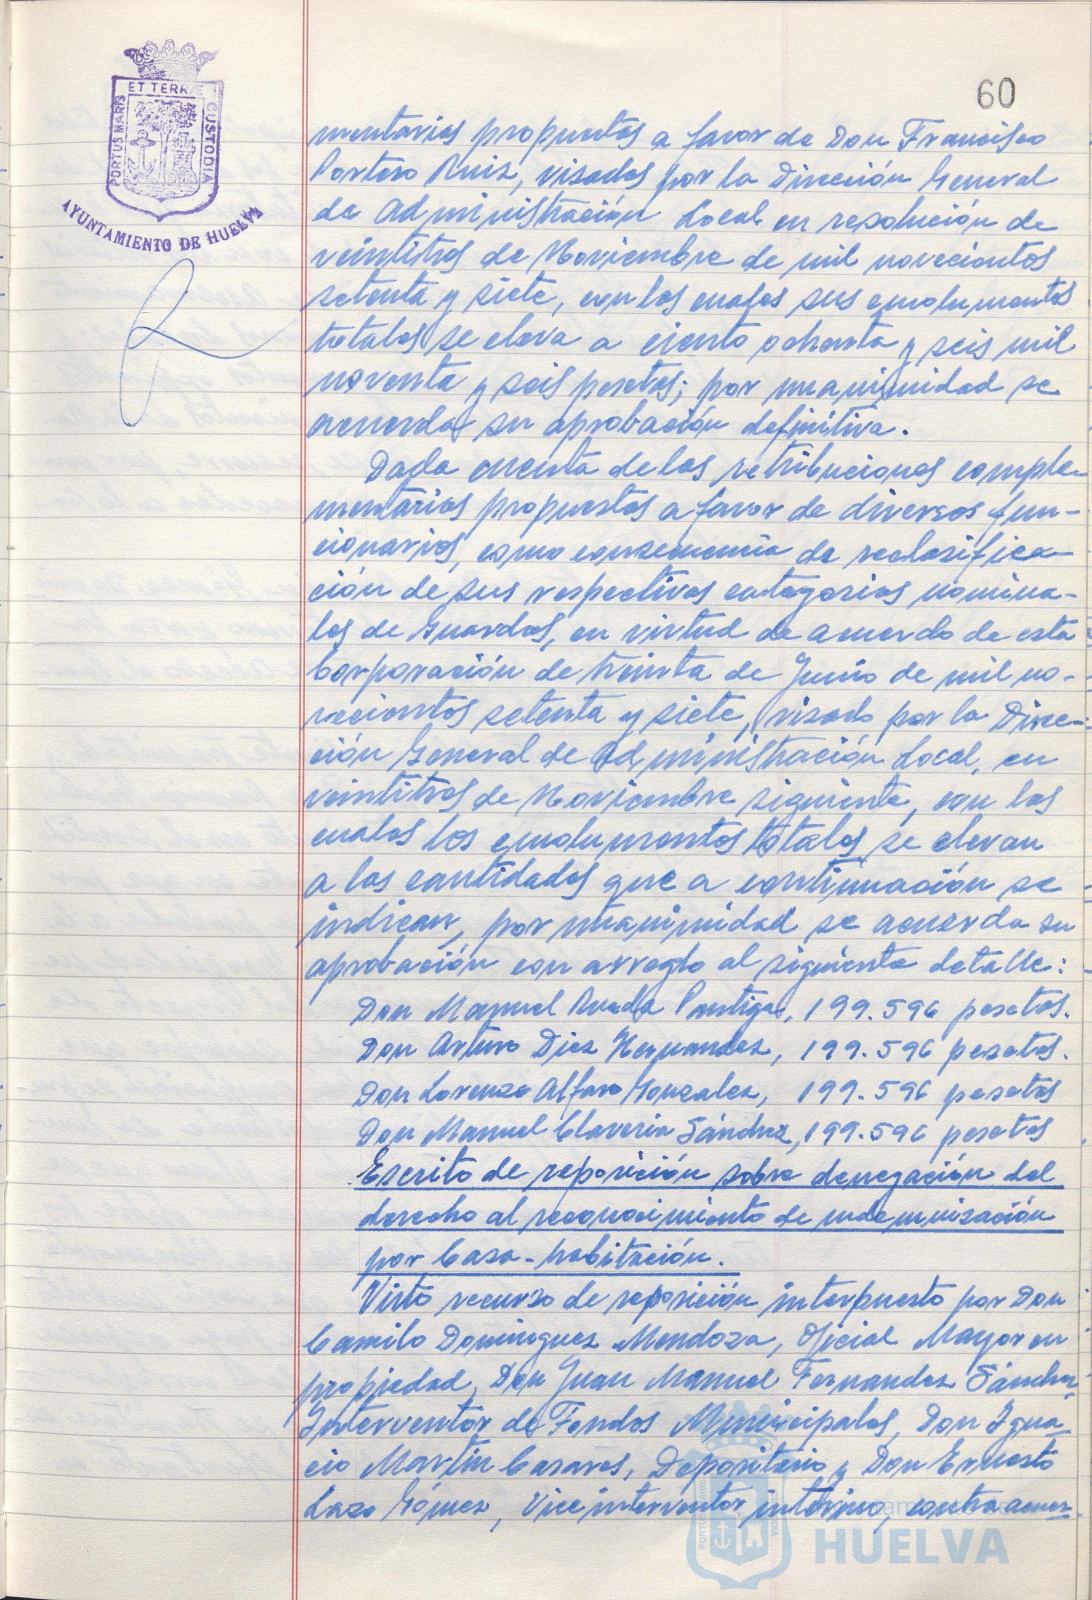 60
PORTUS MARIS ET TERRÆ CUSTODIA
AYUNTAMIENTO DE HUELVA
mentarias propuestas a favor de Don Francisco
Portero Ruiz, visadas por la Dirección General
de Administración Local en resolución de
veintitres de Noviembre de mil novecientos
setenta y siete, con las cuales sus emolumentos
totales se eleva a ciento ochenta y seis mil
noventa y seis pesetas; por unanimidad se
acuerda su aprobación definitiva.
Dada cuenta de las retribuciones comple-
mentarias propuestas a favor de diversos fun-
cionarios, como consecuencia de reclasifica-
ción de sus respectivas categorias nomina-
les de Guardas, en virtud de acuerdo de esta
Corporación de treinta de Junio de mil no-
vecientos setenta y siete, visado por la Direc-
ción General de Administración Local, en
veintitres de Noviembre siguiente, con las
cuales los emolumentos totales se elevan
a las cantidades que a continuación se
indican, por unanimidad se acuerda su
aprobación con arreglo al siguiente detalle:
Don Manuel Rueda Pantiga, 199.596 pesetas.
Don Arturo Diez Hernandez, 199.596 pesetas.
Don Lorenzo Alfaro Gonzalez, 199.596 pesetas
Don Manuel Claveria Sánchez, 199.596 pesetas
Escrito de reposición sobre denegación del
derecho al reconocimiento de indemnización
por Casa-habitación.
Visto recurso de reposición interpuesto por Don
Camilo Dominguez Mendoza, Oficial Mayor en
propiedad, Don Juan Manuel Fernandez Sánchez,
Interventor de Fondos Municipales, Don Igna-
cio Martín Casares, Depositario y Don Ernesto
Lazo Gómez, Vice interventor interino, contra acuer-
HUELVA